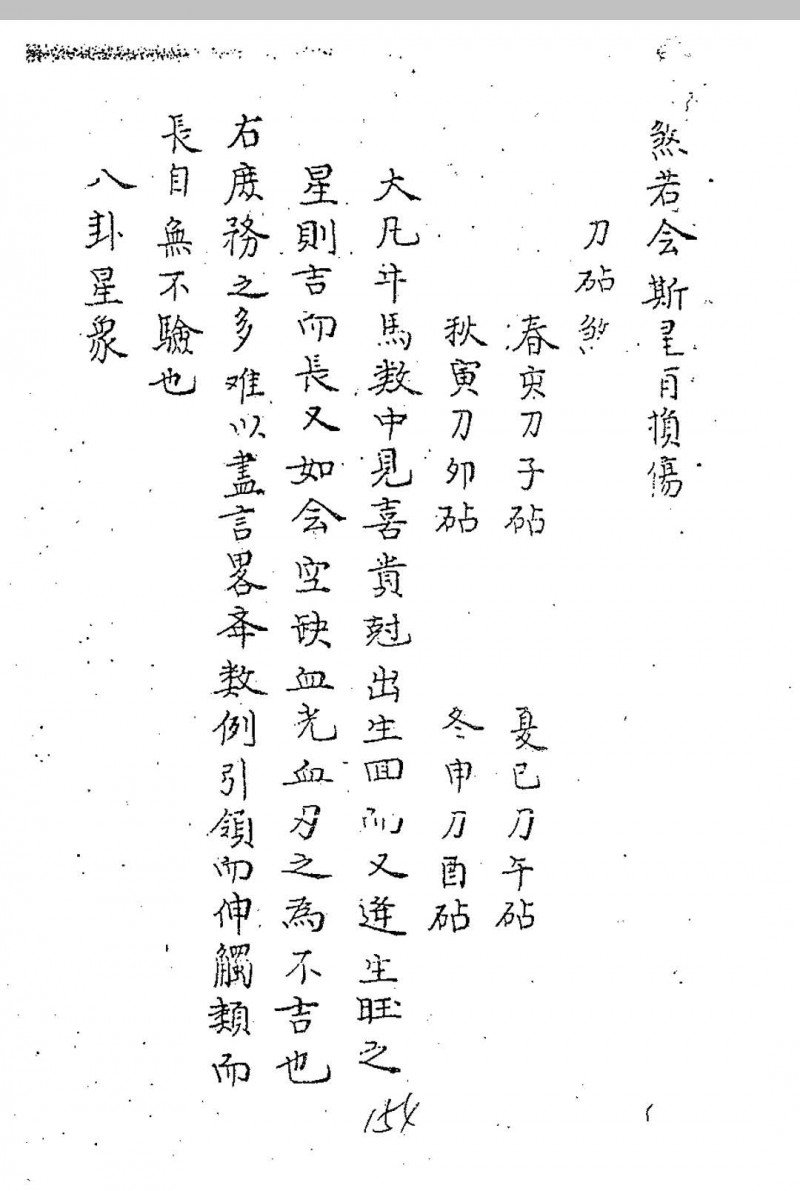 煞若会斯星百損傷
刀砧煞
春亥刀子砧　夏巳刀午砧
秋寅刀卯砧　冬申刀酉砧
大凡牛馬数中見喜貴尅出生回而又逢生旺之
星則吉而長又如会空缺血光血刃之為不吉也
右庶務之多难以盡言畧夲数例引領而伸觸類而
長自無不驗也
八卦星象
154